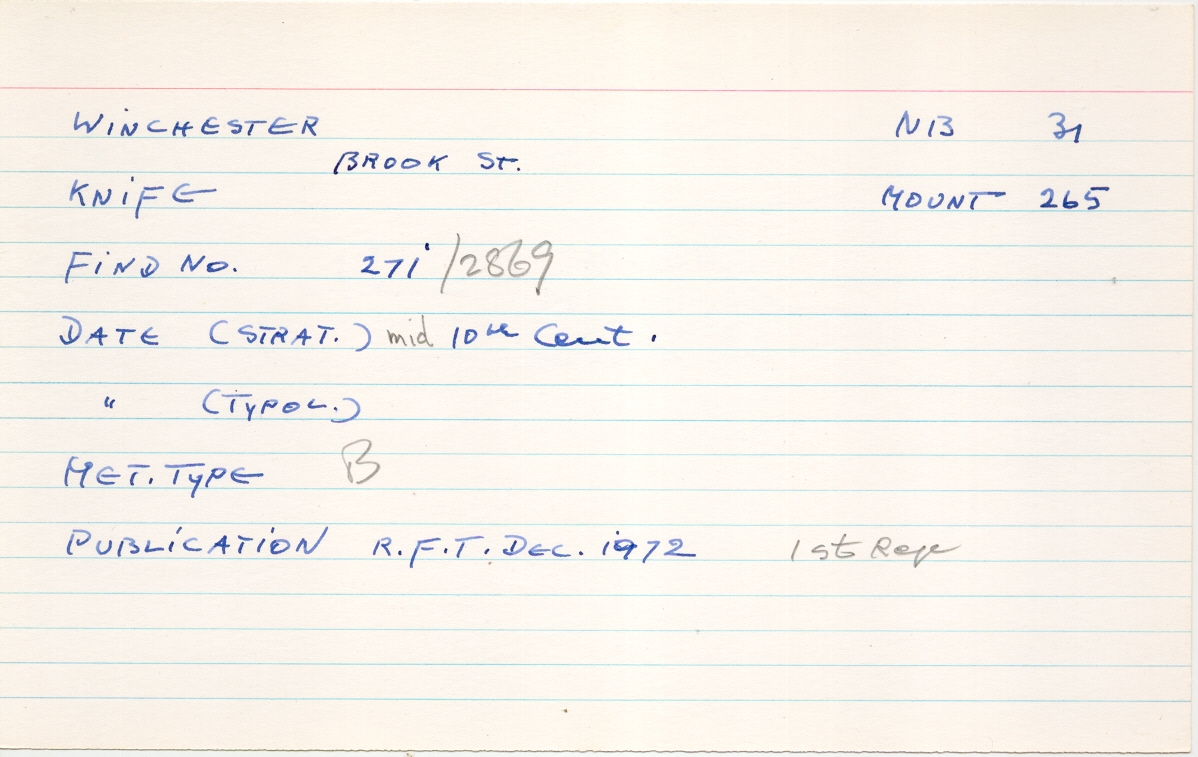 WINCHESTER NB 31
BROOK ST.
KNIFE MOUNT 265
FIND No. 271 /2869
DATE (STRAT.) mid 10th Cent.
" (TYPOL.)
MET. TYPE B
PUBLICATION R.F.T. DEC. 1972 1st Rep